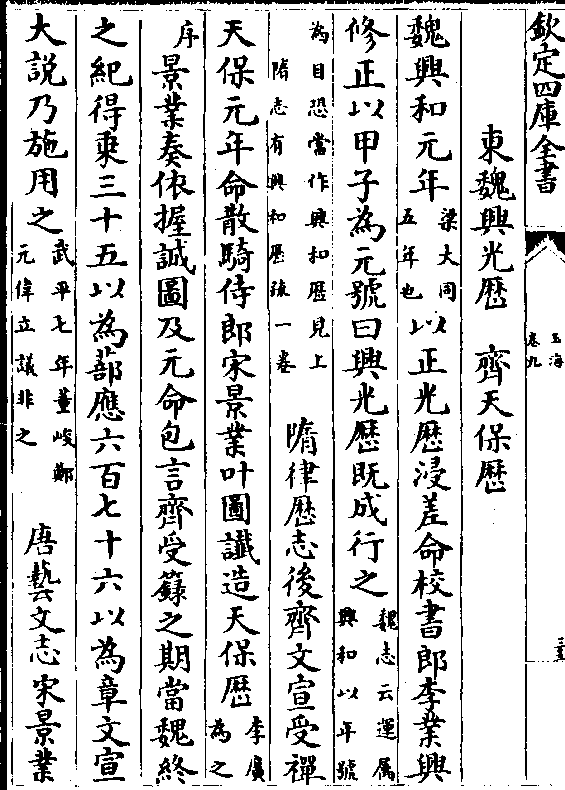 欽定四庫全書
玉海
卷九
東魏興光歴　齊天保歴
魏興和元年梁大同五年也以正光歴浸差命校書郎李業興
修正以甲子為元號曰興光歴既成行之魏志云運屬興和以年號
為目恐當作興和歴見上隋志有興和歴疏一卷　隋律歴志後齊文宣受禪
天保元年命散騎侍郎宋景業叶圖讖造天保歴李廣為之
序景業奏依握誠圖及元命包言齊受籙之期當魏終
之紀得乘三十五以為蔀應六百七十六以為章文宣
大說乃施用之武平七年董峻鄭元偉立議非之　唐藝文志宋景業